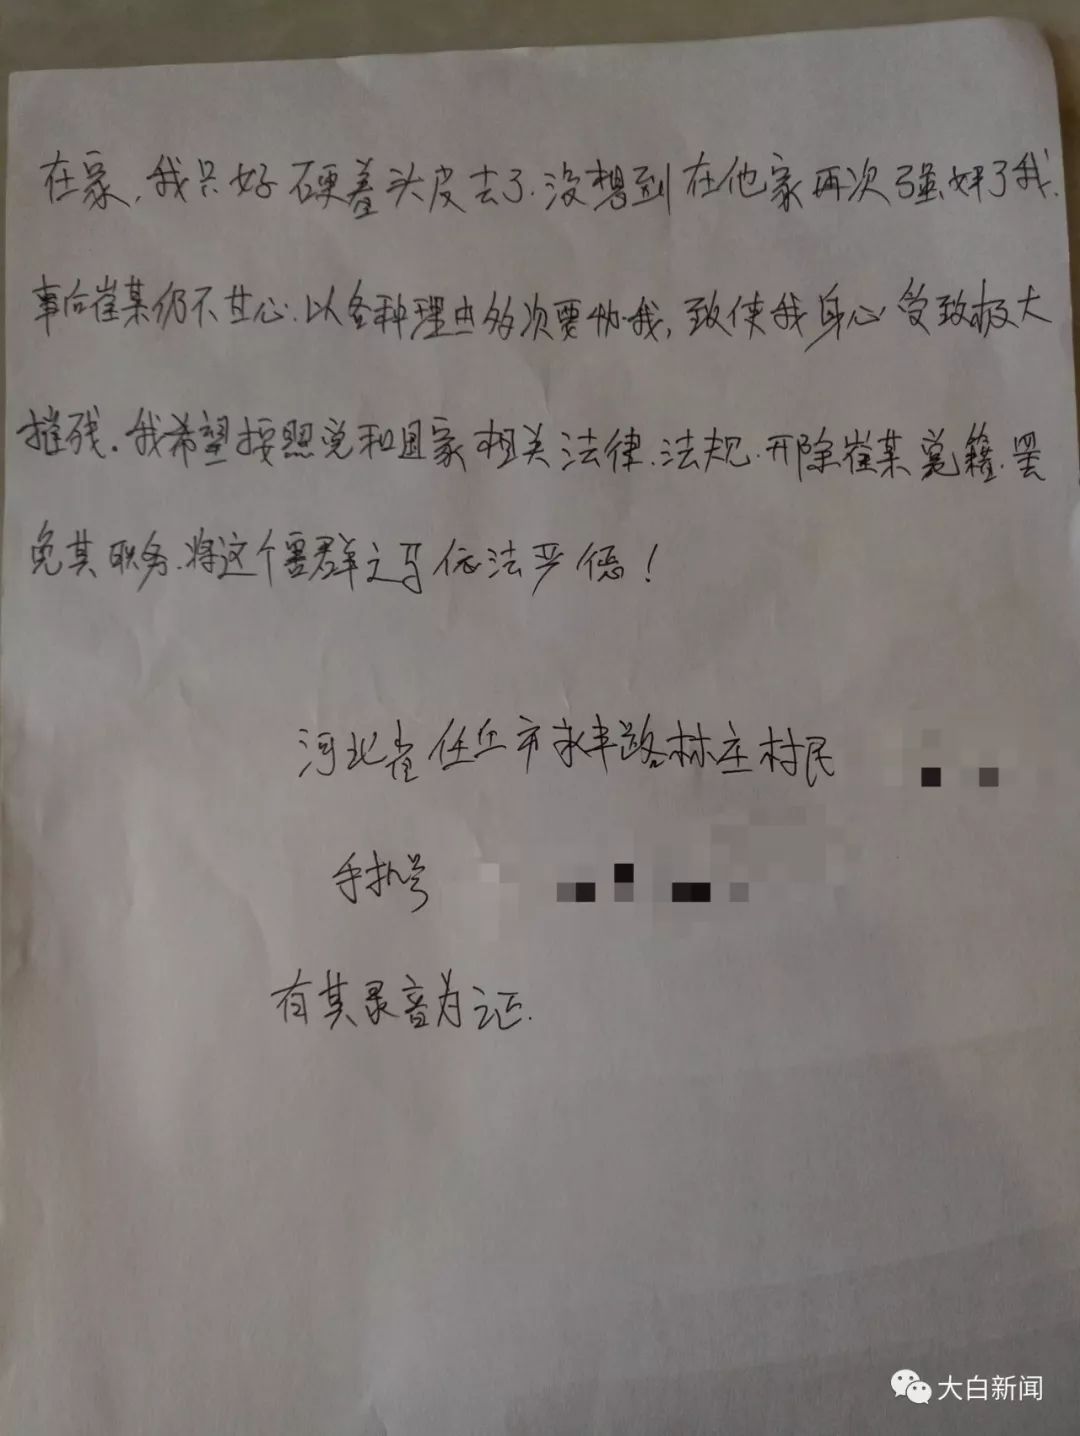 在家，我只好硬着头皮去了.没想到在他家再次强奸了我.
事后崔某仍不甘心.以各种理由多次要胁我，致使我身心受致极大
摧残。我希望按照党和国家相关法律.法规.开除崔某党籍.罢
免其职务.将这个害群之马依法严惩！
河北省任丘市永丰路林庄村民
手机号
有其录音为证.
大白新闻